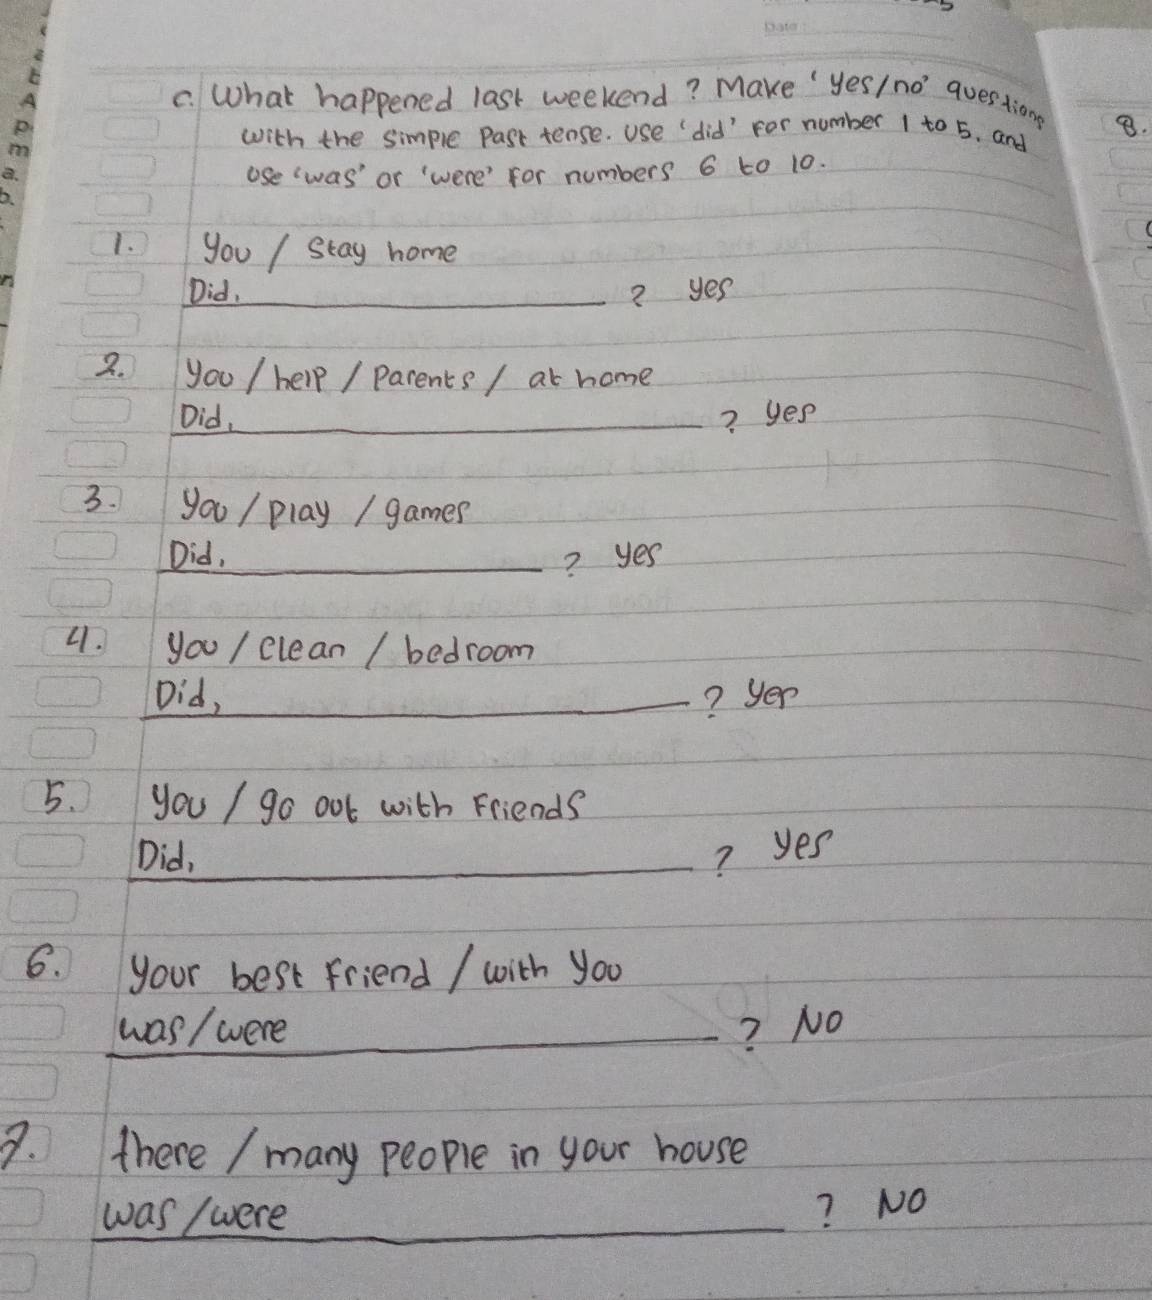 Date:
c. What happened last weekend? Make 'yes/no' questions
with the simple past tense. Use 'did' for number 1 to 5, and
use 'was' or 'were' for numbers 6 to 10.
8.
1. you / stay home
Did, ? yes
2. you / help / parents / at home
Did, ? yes
3. you / play / games
Did, ? yes
4. you / clean / bedroom
Did, ? yes
5. you / go out with friends
Did, ? yes
6. your best friend / with you
was/were ? NO
7. there / many people in your house
was/were ? NO